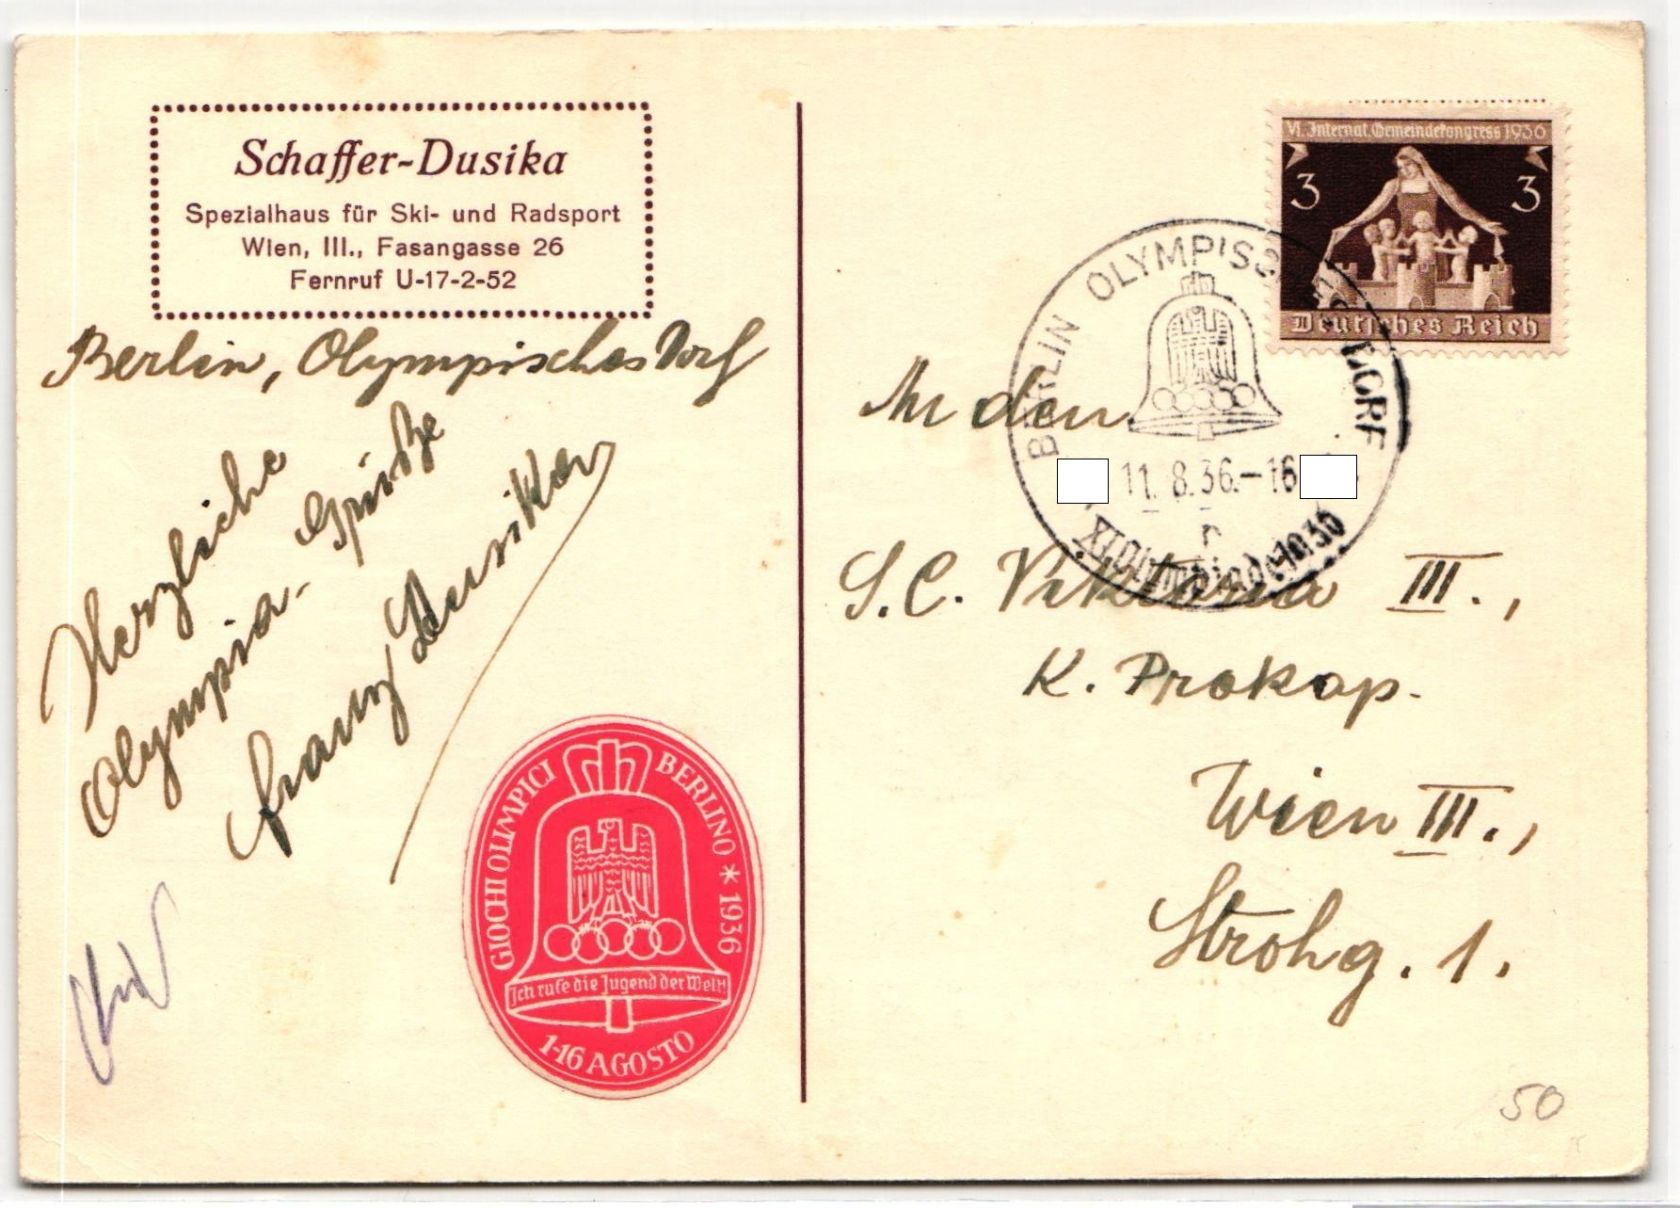 Schaffer-Dusika
Spezialhaus für Ski- und Radsport
Wien, III., Fasangasse 26
Fernruf U-17-2-52
Berlin, Olympisches Dorf
Herzliche
Olympia-Grüße
Franz Dusika
GIOCHI OLIMPICI BERLINO * 1936
Ich rufe die Jugend der Welt!
1-16 AGOSTO
VI. Internat. Gemeindekongress 1936
3 3
Deutsches Reich
BERLIN OLYMPISCHES DORF
11.8.36.-16
XI. Olympiade 1936
An den
S.C. Viktoria III.,
K. Prokop.
Wien III.,
Strohg. 1.
50